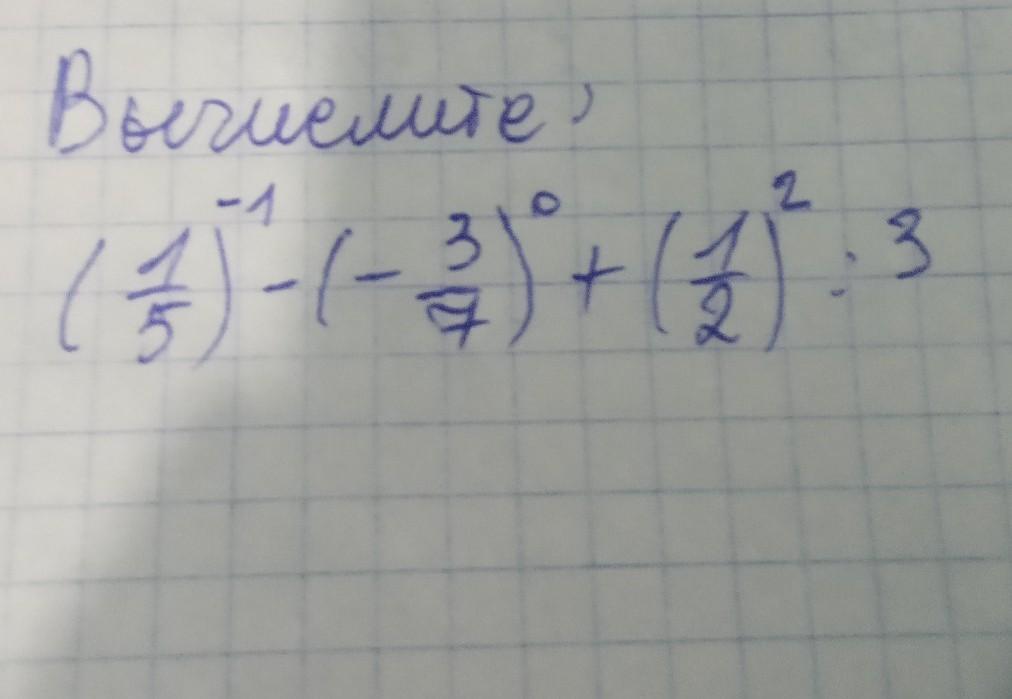 Вычислите:
(1/5)^-1 - (-3/7)^0 + (1/2)^2 : 3